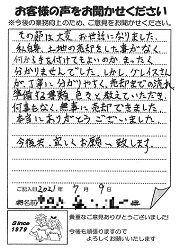 お客様の声をお聞かせください
※今後の業務向上のため、ご意見をお聞かせください。
その節は大変お世話になりました。
私自身、土地の売却をした事がなく、
何から手を付けてもよいのか、まったく
分かりませんでした。しかし、ケレイスさん
が丁寧に分かりやすく、売却までの流れ、
準備する書類等色々と教えていただき、
何事もなく、無事に売却できました。
本当にありがとうございました。
今後共、宜しくお願い致します。
ご記入日2021年7月9日
Since
1979
貴重なご意見ありがとうございました!
今後も頑張りますので
よろしくお願いいたします